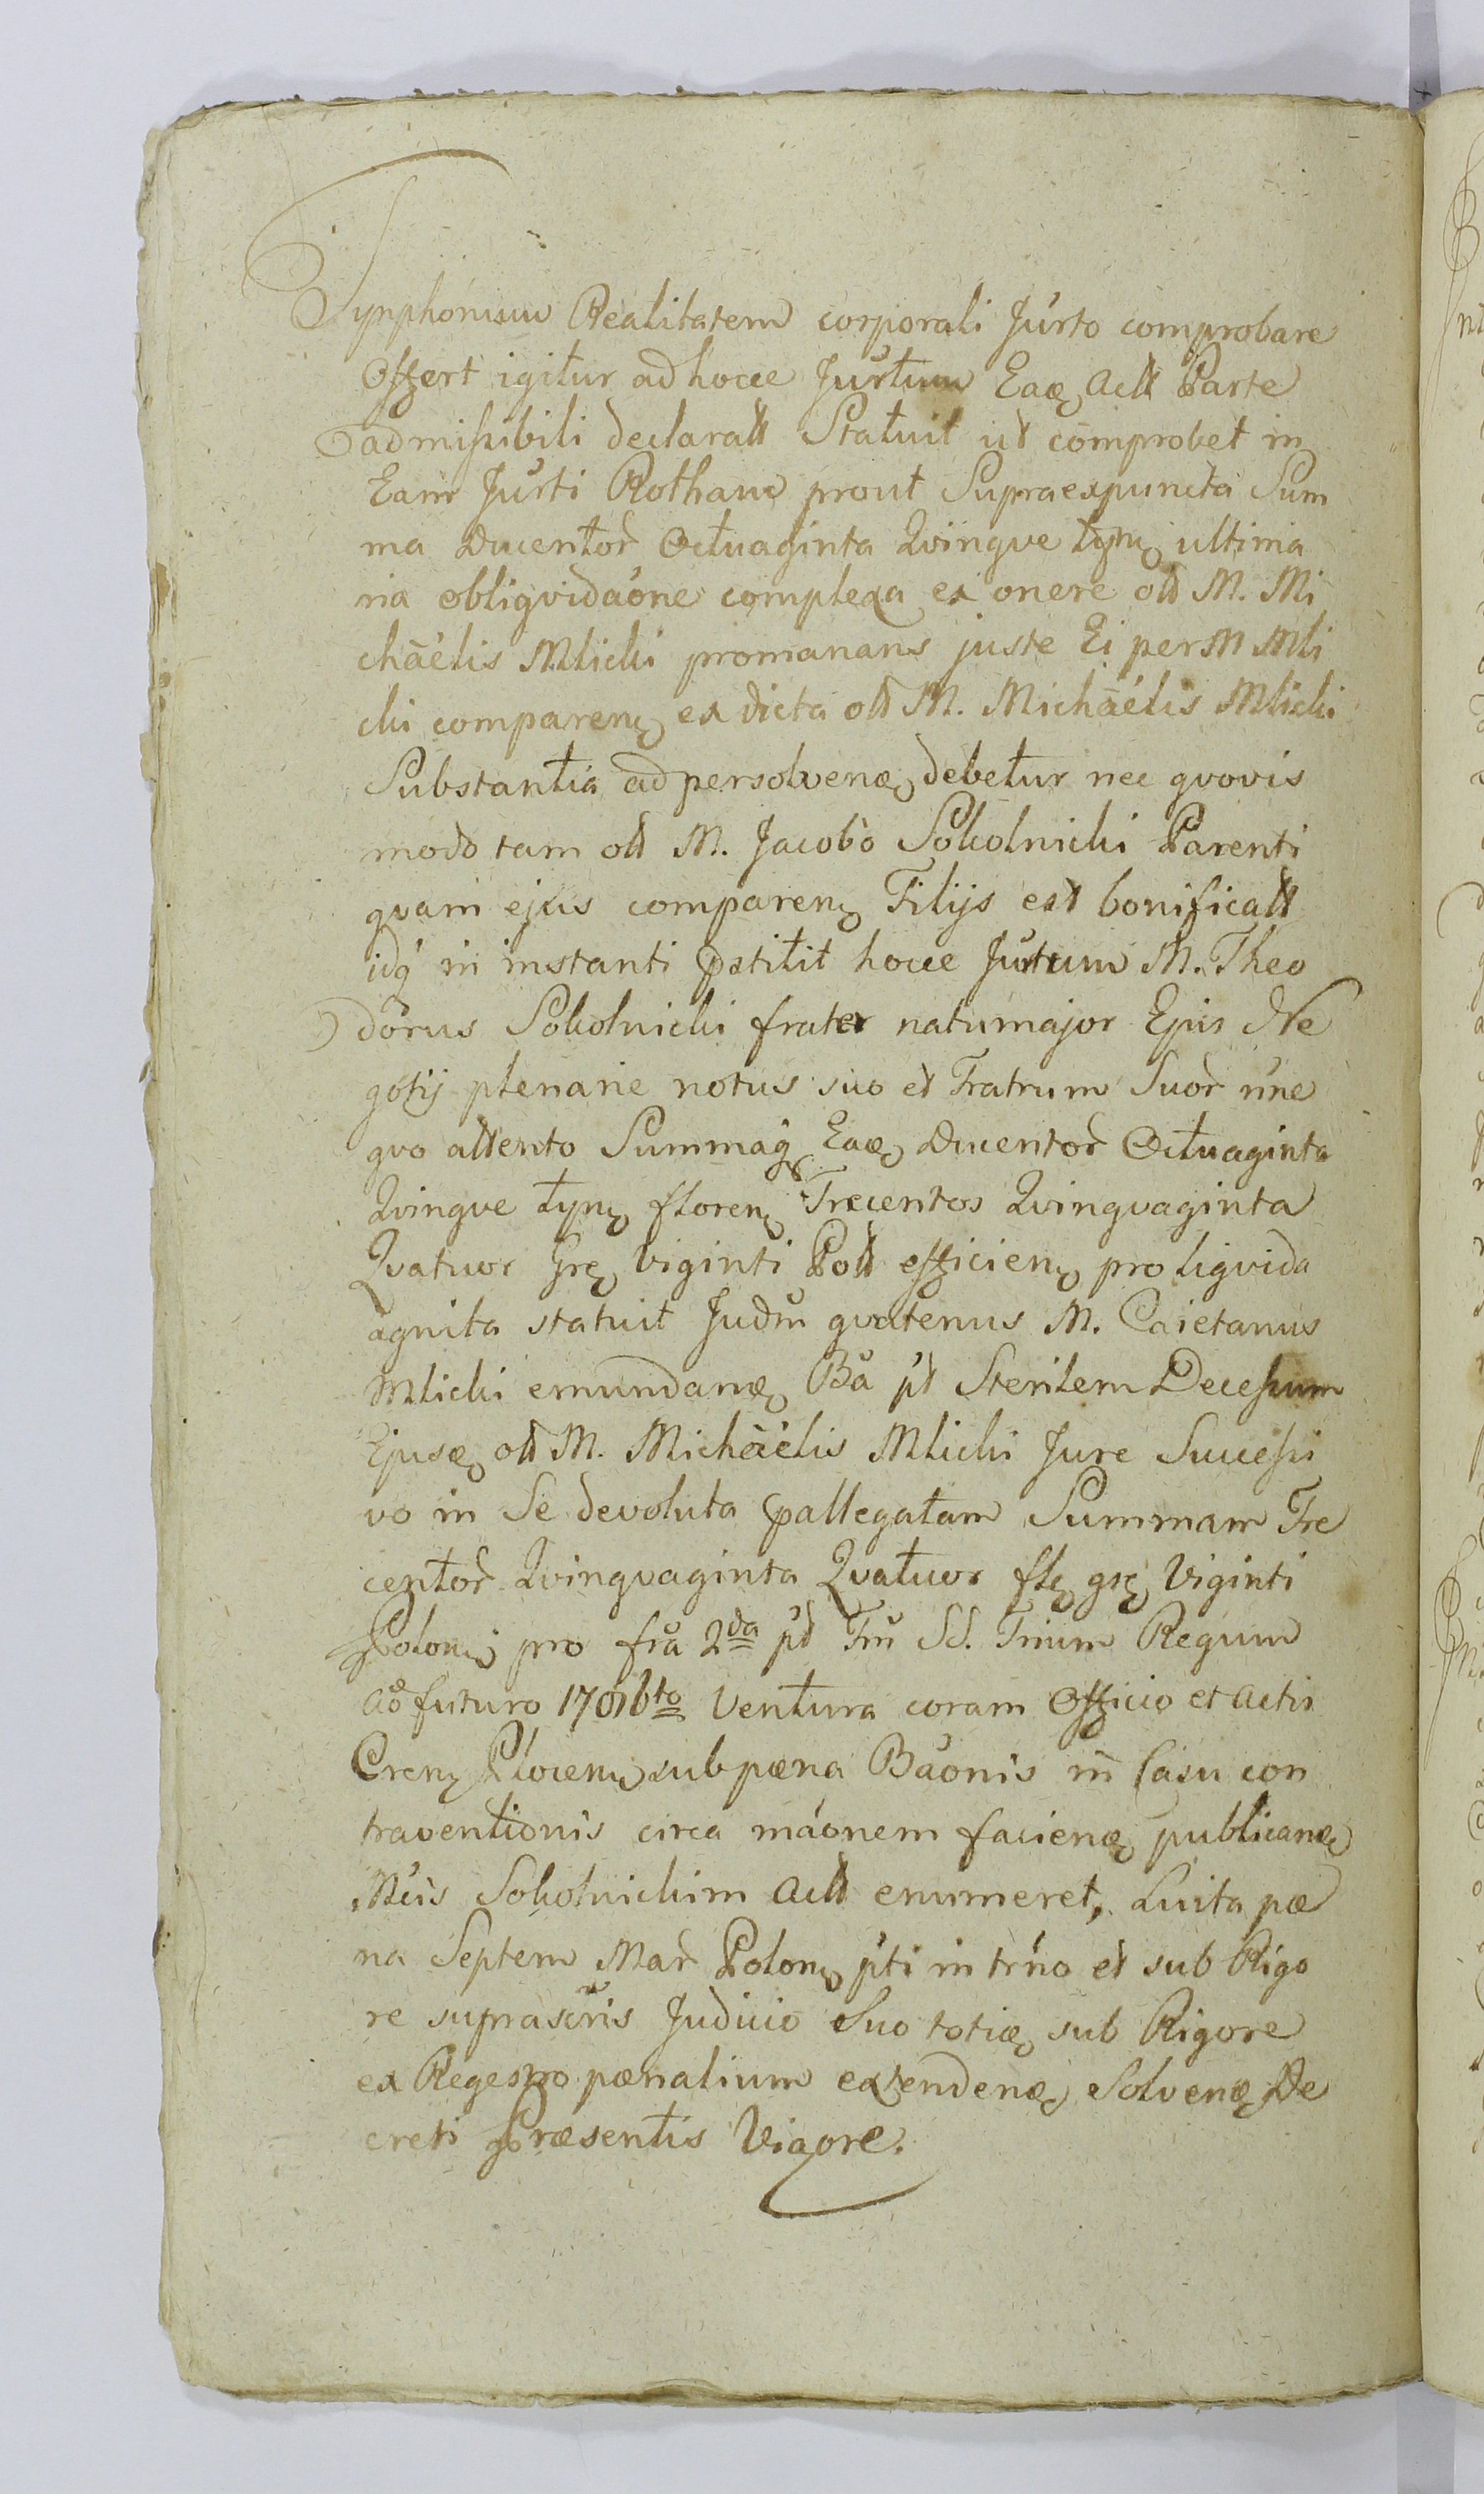 Symphonium Realitatem corporali Jurto comprobare
Offert igitur ad hocce Jurtum Eaę Actt Parte
admissibili declaratt Statuit ut comprobet in
Eam Jurti Rotham prout Supraexpuncta Sum
ma Ducentor Octuaginta Qvinqve tynę ultima
ria obliqvidaóne complexa ex onere ott M. Mi
chaëlis Mlicki promanans juste Ei per M Mli
cki comparenę ex dicta ott M. Michaëlis Mlicki
Substantia ad persolvenę debetur nec qvovis
modo tam ott M. Jacobo Sokolnicki Parenti
qvam ejus comparenę Filijs est bonificatt
idq in instanti pstitit hocce Jurtum M. Theo
dorus Sokolnicki frater natu major Ejus Ne
gotij plenarie notus suo et Fratrum Suor nne
qvo attento Summaq Eaę Ducentor Octuaginta
Qvinqve tynę florenę Trecentos Qvinqvaginta
Qvatuor Grę viginti Poll efficienę pro liqvida
agnita statuit Judm qvatenus M. Caietanus
Mlicki emundanę Ba pt Sterilem Decessum
Ejusę ott M. Michaëlis Mlicki Jure Successi
vo in Se devoluta pallegatam Summam Tre
centor Qvinqvaginta Qvatuor flę grę Viginti
Polonę pro fra 2da pt Frn Sc. Trium Regum
Ao futuro 1767bto ventura coram Officio et Actis
Crenę Plocenę sub pæna Baonis in Casu con
traventionis circa maonem facienę publicanę
Mcis Sokolnickim Actt enumeret, Luita pæ
na Septem Mar Polonę pti in trno et sub Rigo
re suprascris Judicio Suo totię sub Rigore
ex Regestro pænalium extendenę Solvenę De
creti Præsentis Vigore.